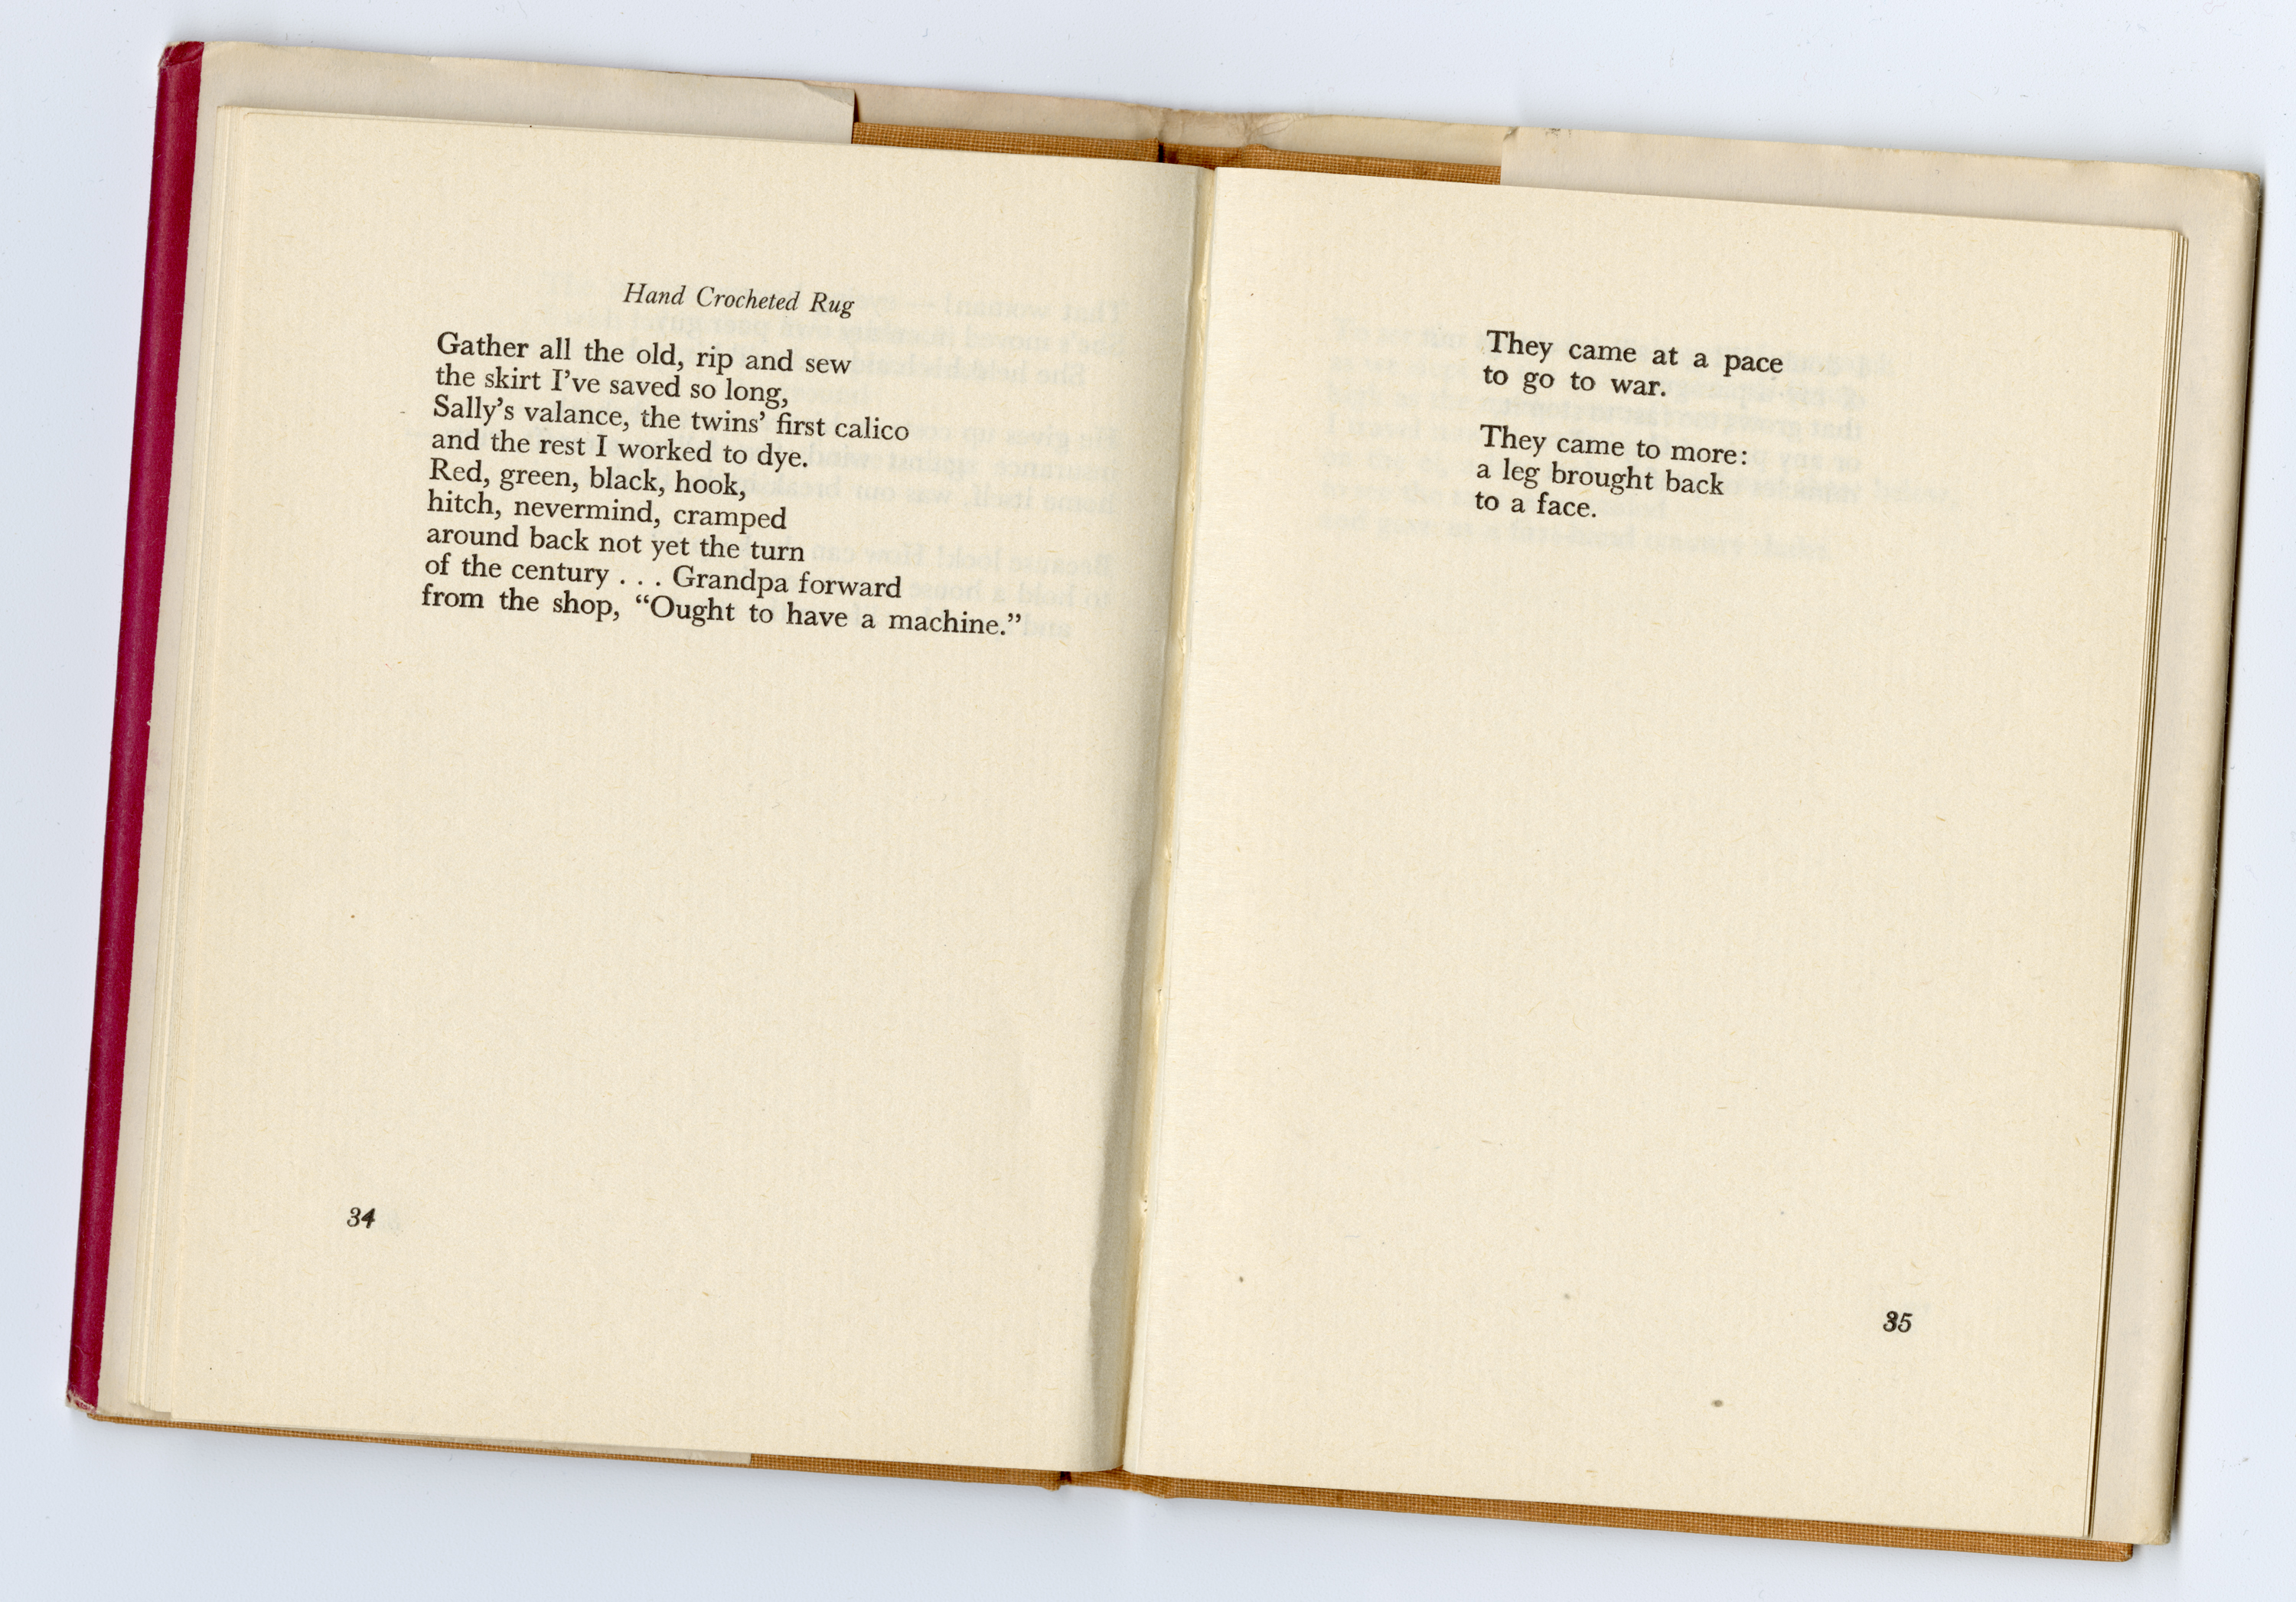 Hand Crocheted Rug
Gather all the old, rip and sew
the skirt I’ve saved so long,
Sally’s valance, the twins’ first calico
and the rest I worked to dye.
Red, green, black, hook,
hitch, nevermind, cramped
around back not yet the turn
of the century . . . Grandpa forward
from the shop, “Ought to have a machine.”
34
They came at a pace
to go to war.
They came to more:
a leg brought back
to a face.
35